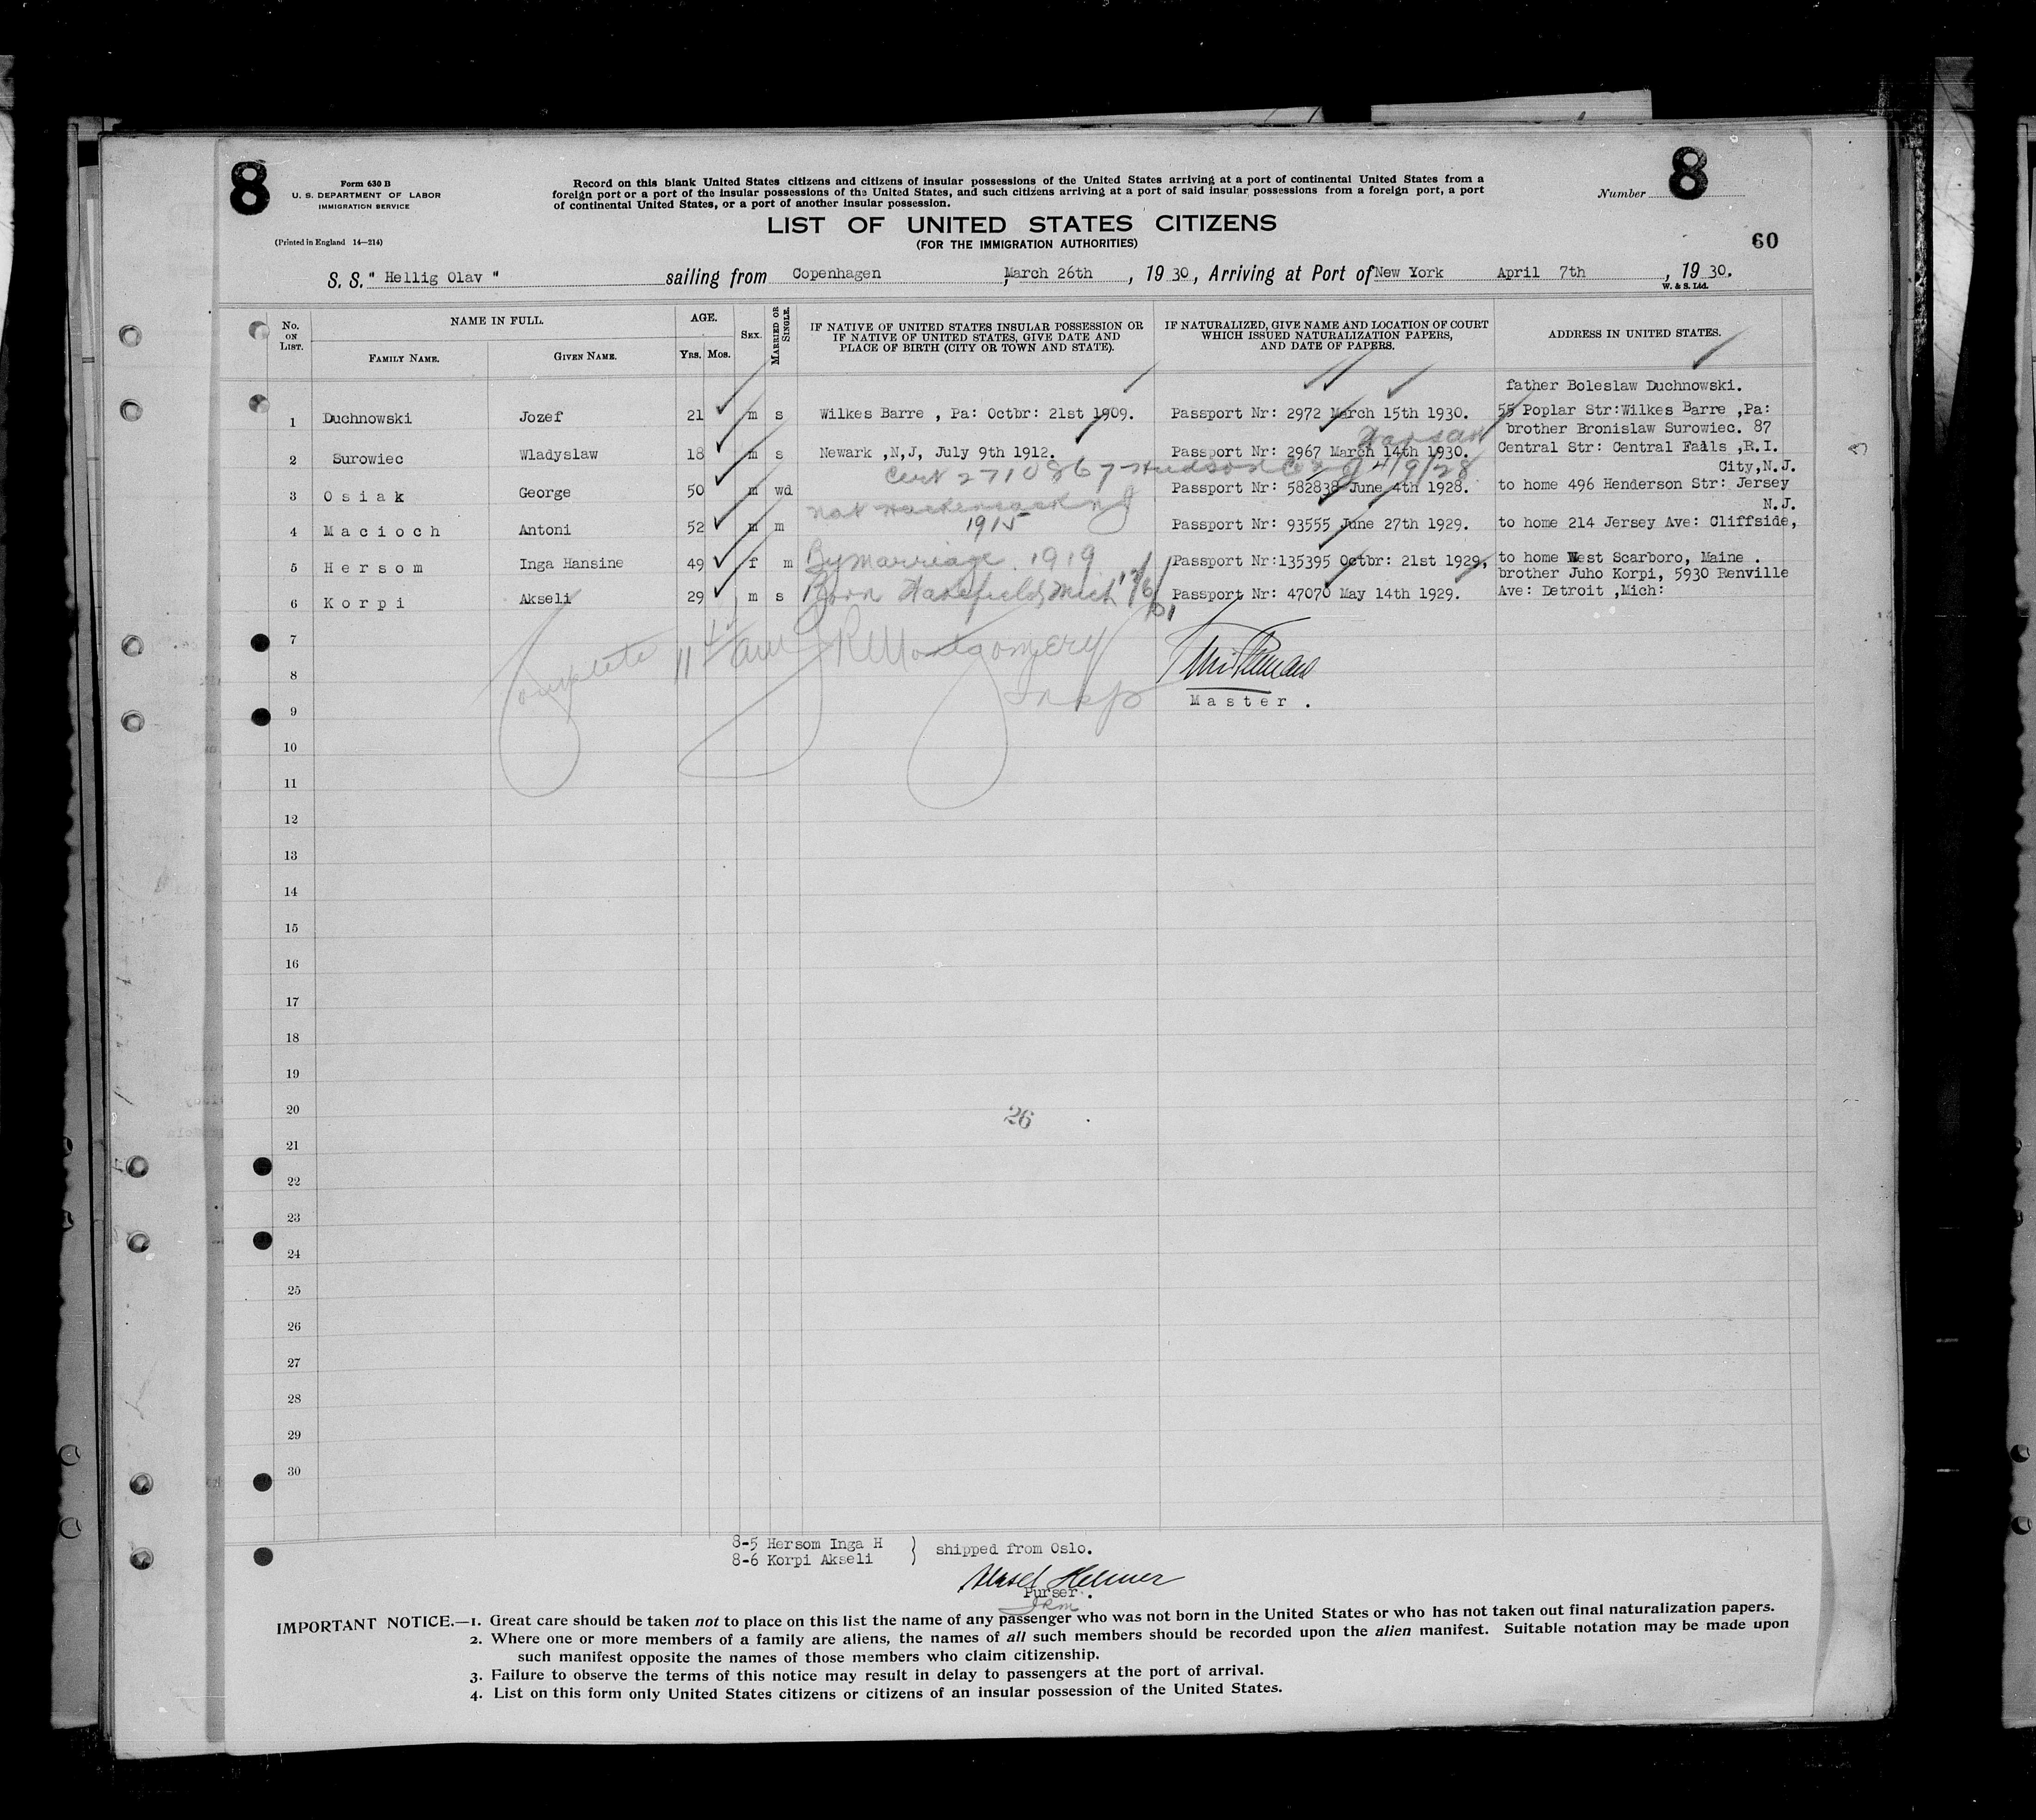 8
Form 630 B
U. S. DEPARTMENT OF LABOR
IMMIGRATION SERVICE
(Printed in England 14—214)
Record on this blank United States citizens and citizens of insular possessions of the United States arriving at a port of continental United States from a
foreign port or a port of the insular possessions of the United States, and such citizens arriving at a port of said insular possessions from a foreign port, a port
of continental United States, or a port of another insular possession.
LIST OF UNITED STATES CITIZENS
(FOR THE IMMIGRATION AUTHORITIES)
Number 8
60
S. S. " Hellig Olav " sailing from Copenhagen , March 26th , 19 30, Arriving at Port of New York April 7th , 19 30.
W. & S. Ltd.
No. ON LIST. NAME IN FULL. AGE. SEX. MARRIED OR SINGLE. IF NATIVE OF UNITED STATES INSULAR POSSESSION OR IF NATIVE OF UNITED STATES, GIVE DATE AND PLACE OF BIRTH (CITY OR TOWN AND STATE). IF NATURALIZED, GIVE NAME AND LOCATION OF COURT WHICH ISSUED NATURALIZATION PAPERS, AND DATE OF PAPERS. ADDRESS IN UNITED STATES.
FAMILY NAME. GIVEN NAME. YRS. MOS.
father Boleslaw Duchnowski.
1 Duchnowski Jozef 21 m s Wilkes Barre , Pa: Octbr: 21st 1909. Passport Nr: 2972 March 15th 1930. 55 Poplar Str:Wilkes Barre ,Pa:
brother Bronislaw Surowiec. 87
Warsaw
2 Surowiec Wladyslaw 18 m s Newark ,N,J, July 9th 1912. Passport Nr: 2967 March 14th 1930. Central Str: Central Falls ,R.I.
Cert 2710867 Hudson Co NJ 4/9/28
City,N.J.
3 Osiak George 50 m wd Passport Nr: 582838 June 4th 1928. to home 496 Henderson Str: Jersey
Nat Hackensack NJ
N.J.
4 Macioch Antoni 52 m m 1915 Passport Nr: 93555 June 27th 1929. to home 214 Jersey Ave: Cliffside,
5 Hersom Inga Hansine 49 f m By marriage 1919 Passport Nr:135395 Octbr: 21st 1929, to home West Scarboro, Maine .
brother Juho Korpi, 5930 Renville
6 Korpi Akseli 29 m s Born Wakefield, Mich Passport Nr: 47070 May 14th 1929. Ave: Detroit ,Mich:
7
Complete JR Montgomery
8
Insp
Master .
9
10
11
12
13
14
15
16
17
18
19
20
26
21
22
23
24
25
26
27
28
29
30
8-5 Hersom Inga H } shipped from Oslo.
8-6 Korpi Akseli
Purser .
JRM
IMPORTANT NOTICE.—1. Great care should be taken not to place on this list the name of any passenger who was not born in the United States or who has not taken out final naturalization papers.
2. Where one or more members of a family are aliens, the names of all such members should be recorded upon the alien manifest. Suitable notation may be made upon
such manifest opposite the names of those members who claim citizenship.
3. Failure to observe the terms of this notice may result in delay to passengers at the port of arrival.
4. List on this form only United States citizens or citizens of an insular possession of the United States.